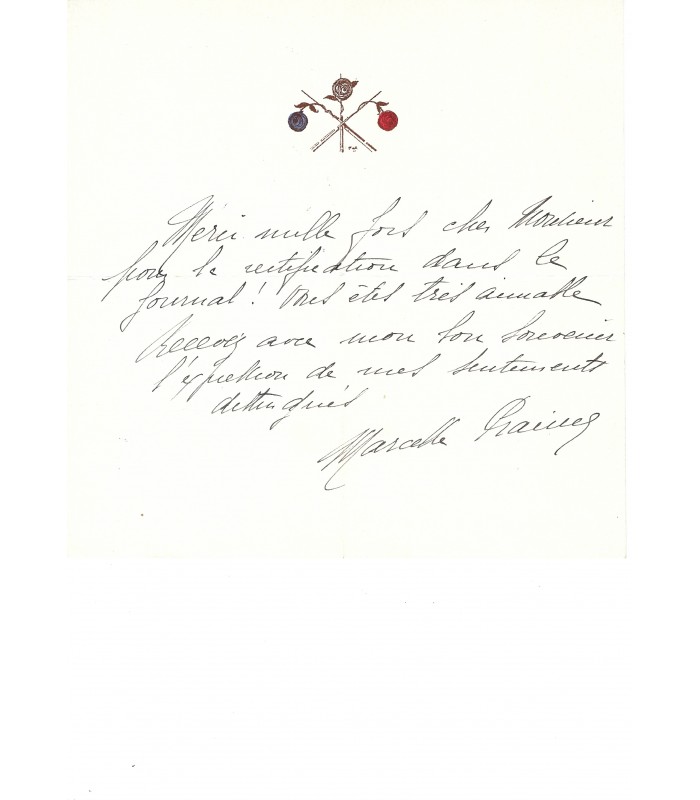 Merci mille fois cher Monsieur
pour la rectification dans le
Journal ! Vous êtes très aimable
Recevez avec mon bon souvenir
l'expression de mes sentiments
distingués
Marcelle